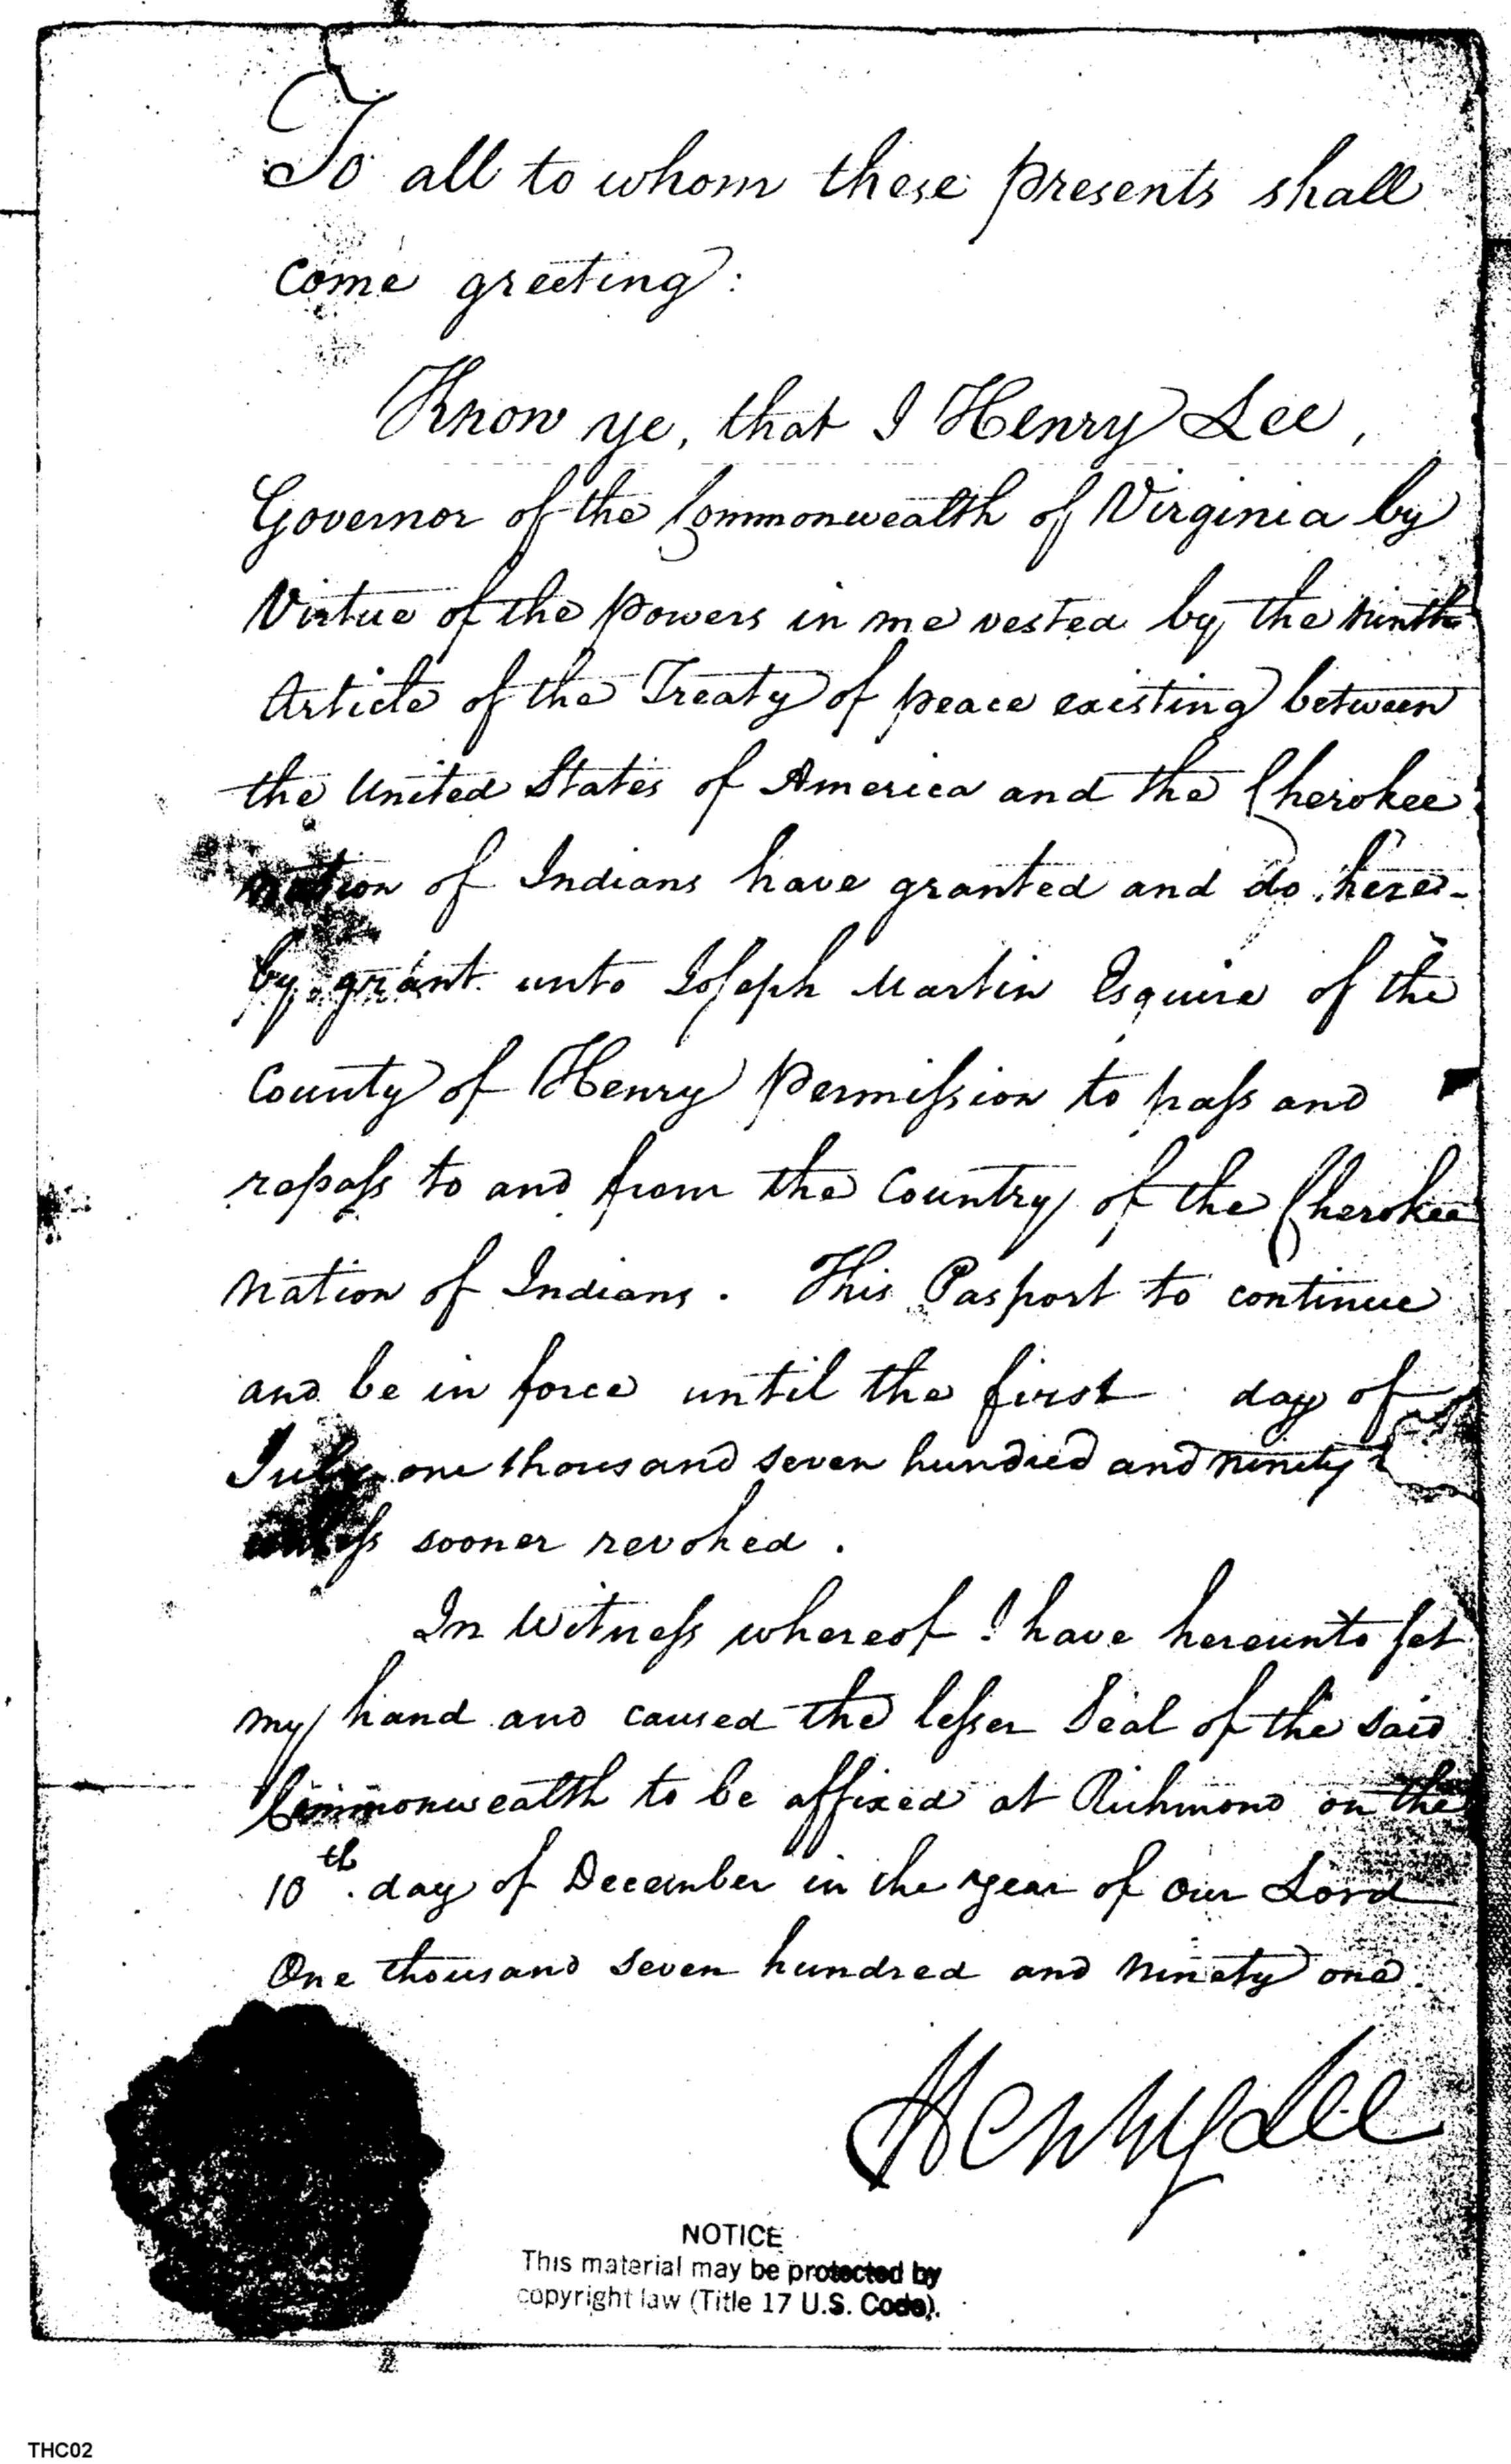 To all to whom these presents shall
come greeting:
Know ye, that I Henry Lee,
Governor of the Commonwealth of Virginia by
Virtue of the powers in me vested by the ninth
Article of the Treaty of peace existing between
the United States of America and the Cherokee
nation of Indians have granted and do here-
by grant unto Joseph Martin Esquire of the
County of Henry permission to pass and
repass to and from the Country of the Cherokee
nation of Indians. This Pasport to continue
and be in force until the first day of
July one thousand seven hundred and ninety
unless sooner revoked.
In Witness whereof I have hereunto set
my hand and caused the lesser Seal of the said
Commonwealth to be affixed at Richmond on the
10th. day of December in the year of our Lord
One thousand seven hundred and ninety one.
Henry Lee
NOTICE
This material may be protected by
copyright law (Title 17 U.S. Code).
THC02